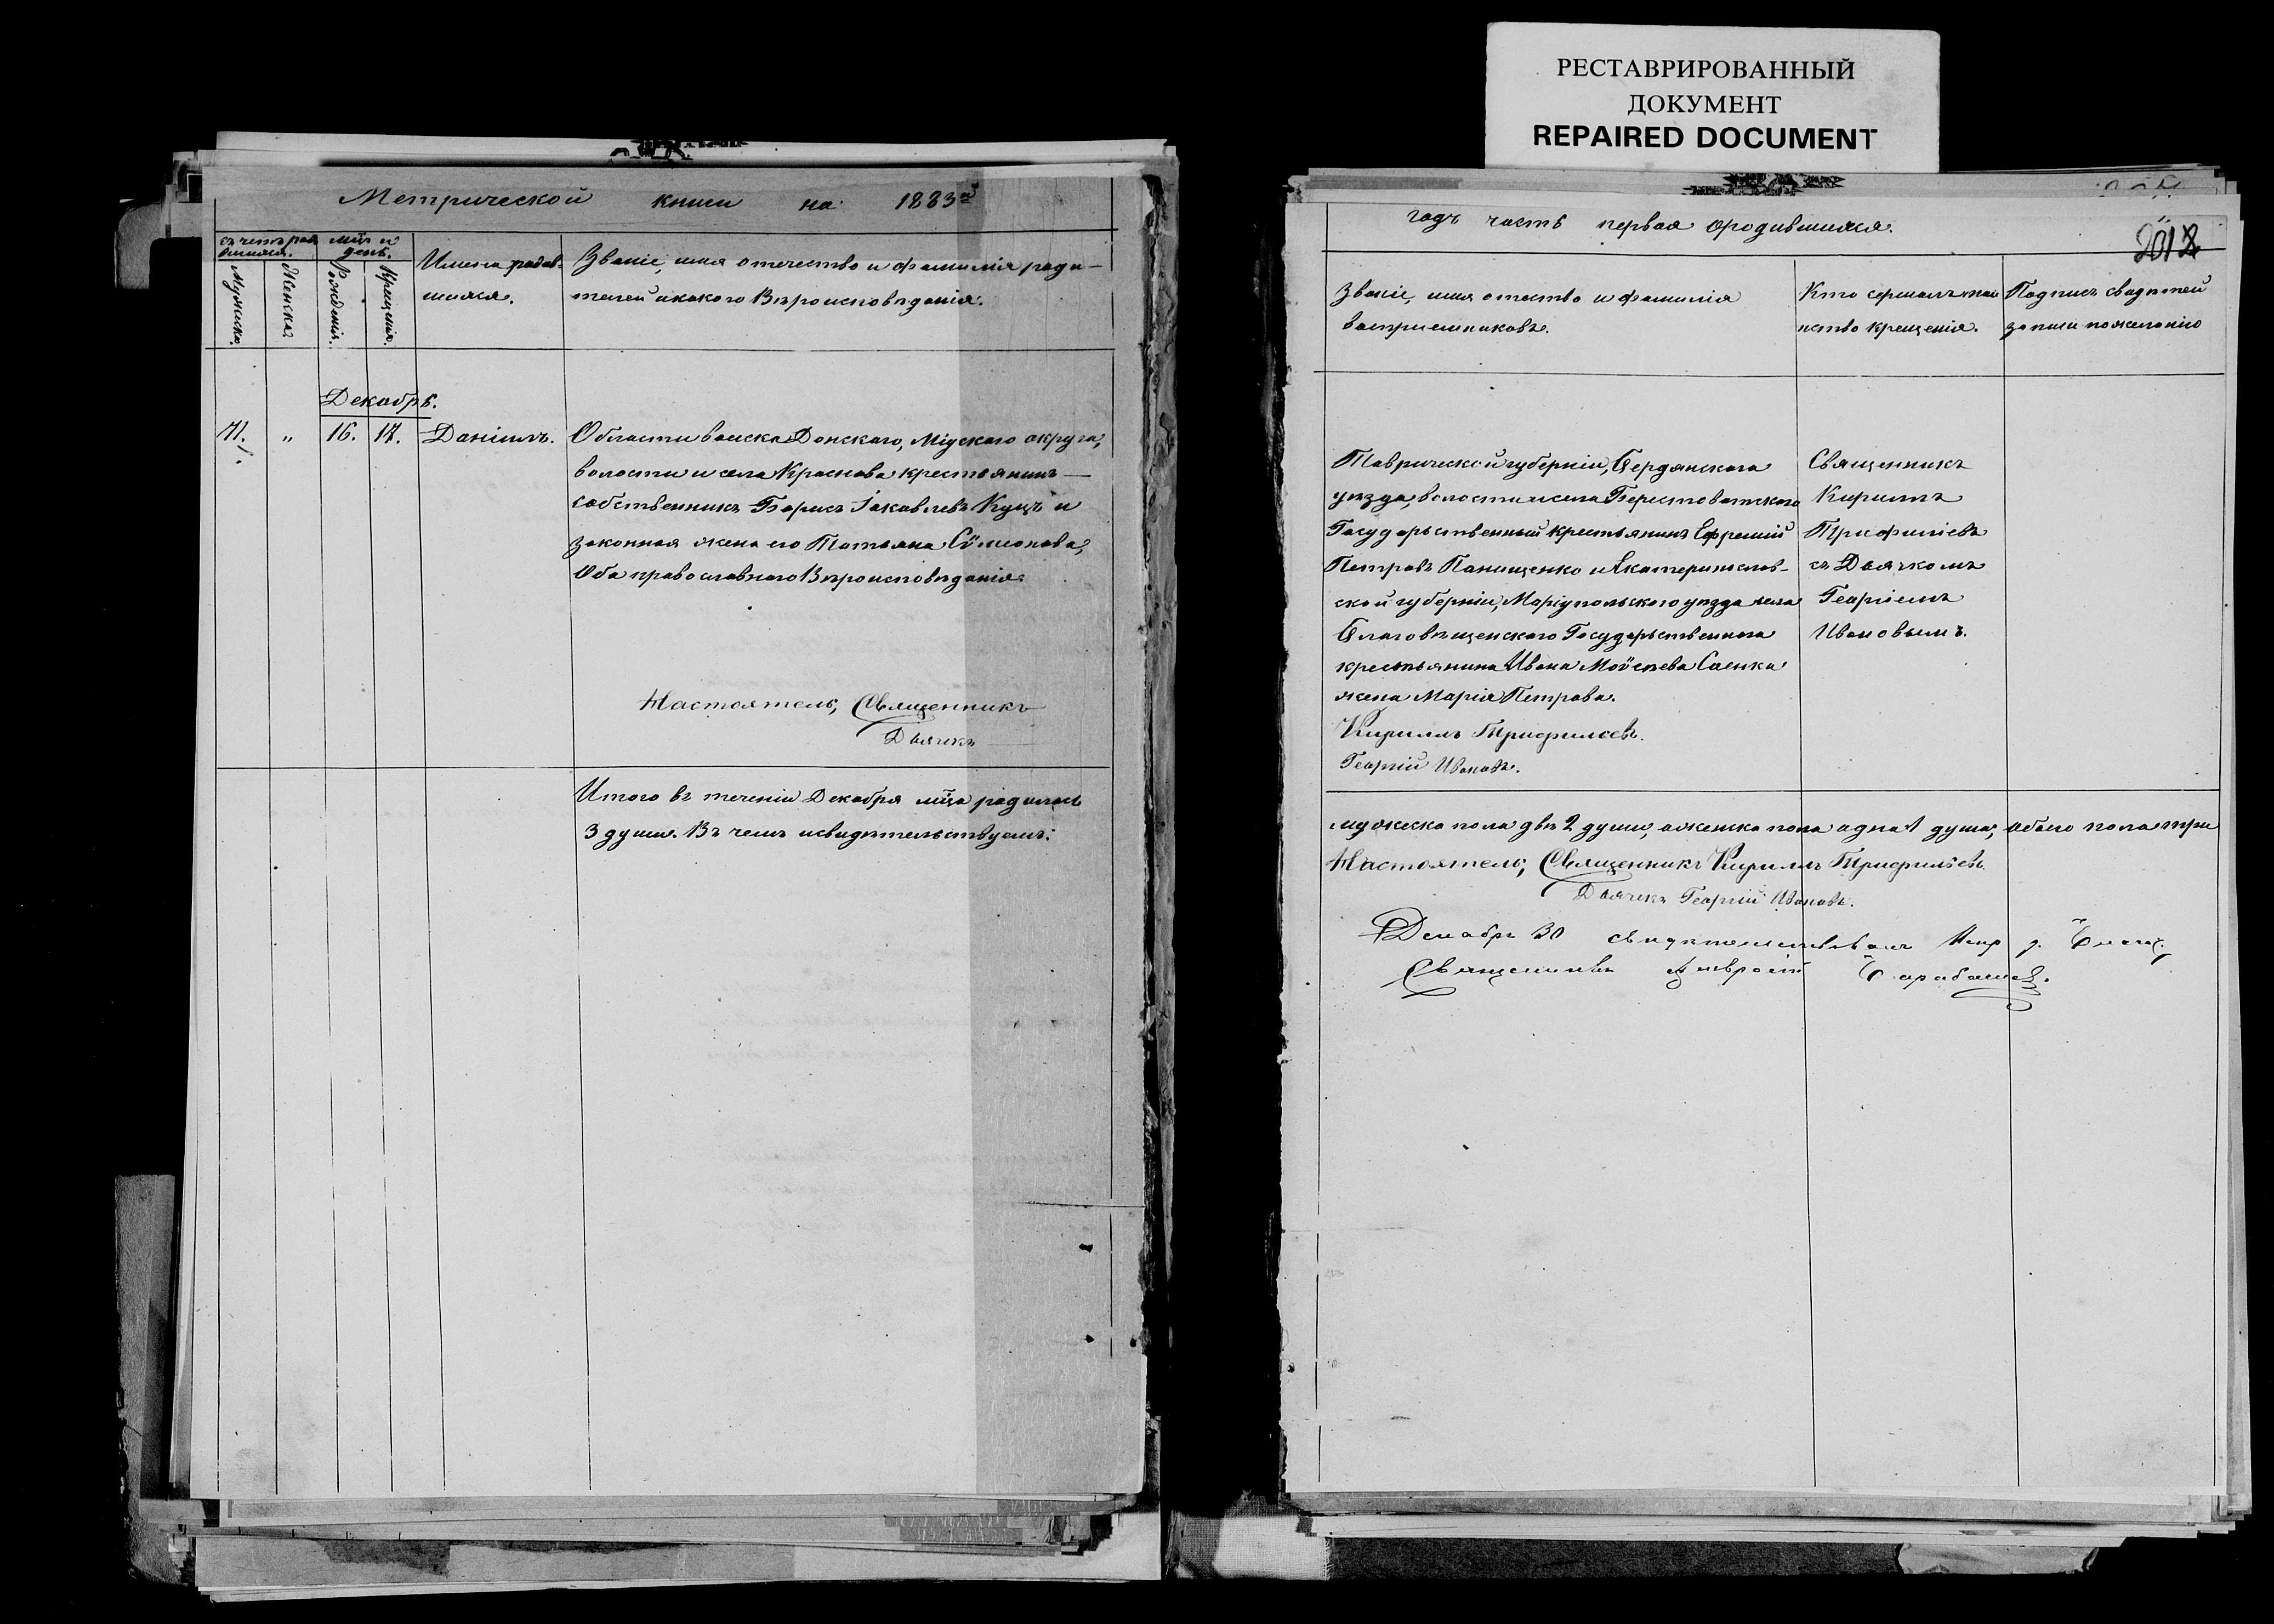 РЕСТАВРИРОВАННЫЙ
ДОКУМЕНТ
REPAIRED DOCUMENT
Метрической книги на 1883й
счетъ родившихся.
мцъ и день.
Мужска.
Женска.
Рожденія.
Крещенія.
Имена родив-
шихся.
Званіе, имя отечество и фамилія роди-
телей и какого Вѣроисповѣданія.
Декабрь.
71. „ 16. 17. Даніилъ.
Области войска Донскаго, Міускаго округа,
волости и села Краснова крестьянинъ
собственникъ Борисъ Іаковлевъ Куцъ и
законная жена его Татьяна Сѵмеонова,
Оба православнаго Вѣроисповѣданія.
Настоятель, Священникъ
Дьячекъ
Итого въ теченіи Декабря мца родилось
3 души. Въ чемъ и свидѣтельствуемъ:
годъ часть первая о родившихся.
201
Званіе, имя отчество и фамилія
воспріемниковъ.
Кто совершалъ таи
нство крещенія.
Подпись свидѣтелей
записи по желанію
Таврической губерніи, Бердянскаго
уѣзда, волости и села Берестоватскаго
Государственный крестьянинъ Ефремій
Петровъ Панищенко и Екатеринослав-
ской губерніи, Маріупольскаго уѣзда села
Благовѣщенскаго Государственнаго
крестьянина Ивана Моѵсеева Саенка
жена Марія Петрова.
Кириллъ Трифильевъ.
Георгій Ивановъ.
Священникъ
Кириллъ
Трифиліевъ
съ Дьячкомъ
Георгіемъ
Ивановымъ.
мужеска пола двѣ 2 души, а женска пола одна 1 душа, обоего пола три
Настоятель, Священникъ Кириллъ Трифильевъ.
Дьячекъ Георгій Ивановъ.
Декабря 30 свидѣтельствовалъ
Священникъ